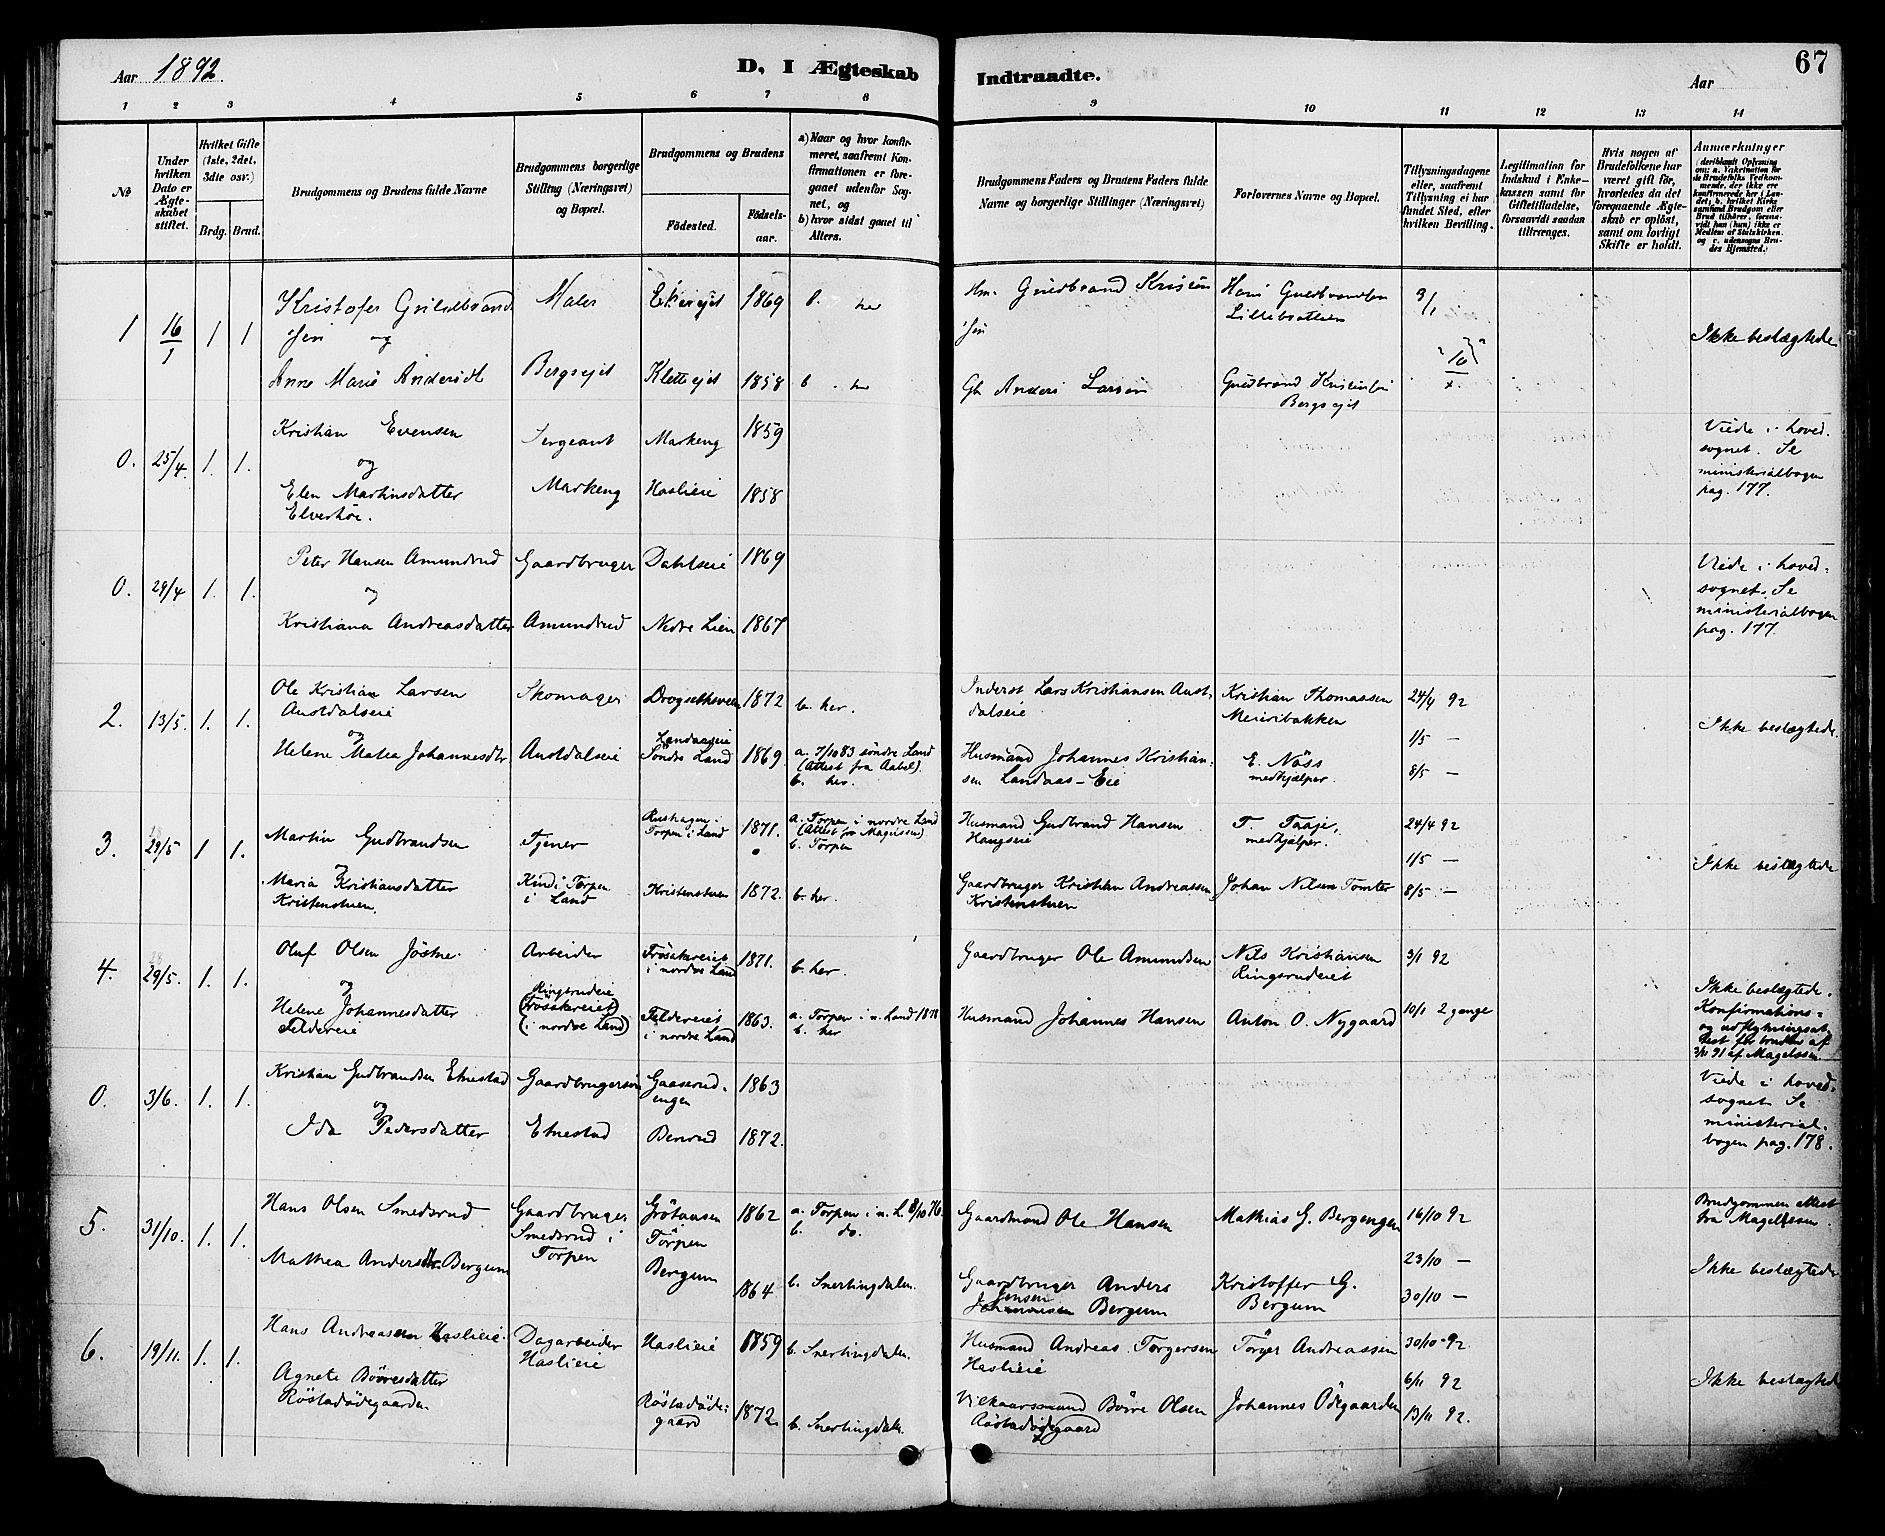 Aar 1892.
D, I Ægteskab Indtraadte.
Aar
67
1 2 3 4 5 6 7 8 9 10 11 12 13 14
No
Under hvilken Dato er Ægteskabet stiftet.
Hvilket Gifte (1ste, 2det, 3die osv.)
Brdg. Brud.
Brudgommens og Brudens fulde Navne
Brudgommens borgerlige Stilling (Næringsvei) og Bopæl.
Brudgommens og Brudens
Fødested.
Fødsels-aar.
a) Naar og hvor konfirmeret, saafremt Konfirmationen er foregaaet udenfor Sognet, og
b) hvor sidst gaaet til Alters.
Brudgommens Faders og Brudens Faders fulde Navne og borgerlige Stillinger (Næringsvei)
Forlovernes Navne og Bopæl.
Tillysningsdagene eller, saafremt Tillysning ei har fundet Sted, efter hvilken Bevilling.
Legitimation for Indskud i Enkekassen samt for Giftetilladelse, forsaavidt saadan tiltrænges.
Hvis nogen af Brudefolkene har været gift før, hvorledes da det foregaaende Ægteskab er opløst, samt om lovligt Skifte er holdt.
Anmærkninger
1 16/1 1 1
Kristofer Guldbrandsen og
Anne Marie Andersdt
Maler
Bergsejet
Ekerejet 1869
Kletteejet 1858
b. her
b. her
Hm. Gudbrand Kristensen
Gb Anders Larsen
Hans Gudbrandsen Lillebratten
Gudbrand Kristensen Bergsejet
3/1
10/1
Ikke beslægtede
0. 25/4. 1. 1.
Kristian Evensen
og
Elen Martinsdatter
Elverhøi.
Sergeant
Markeng
Markeng 1859
Haslieie 1858
Viede i hovedsognet. Se ministerialbogen pag. 177.
0. 29/4 1. 1.
Peter Hansen Amundrud
og
Kristiana Andreasdatter
Gaardbruger
Amundrud
Dahlseie 1869
Nedre Lien 1867
Viede i hovedsognet. Se ministerialbogen pag. 177.
2. 13/5. 1. 1.
Ole Kristian Larsen
Austdalseie
og
Helene Matea Johannesdtr
Skomager
Austdalseie
Drogsethsveen 1872
Landaaseie Søndre Land 1869
b. her.
a. 7/10 83 søndre Land (Attest fra Aabel).
b. her.
Inderst Lars Kristiansen Austdalseie
Husmand Johannes Kristiansen Landaas-Eie
Kristian Thomassen Meieribakken
E. Näss medhjælper.
24/4 92
1/5 —
8/5 —
Ikke beslægtede.
3. 29/5 1 1.
Martin Gudbrandsen
og
Maria Kristiansdatter
Kristenstuen.
Tjener
Kind i Torpen i Land
Rushagen i Torpen i Land 1871.
Kristenstuen 1872.
a. Torpen i nordre Land (Attest fra Magelssen)
b. Torpen
b. her.
Husmand Gudbrand Hansen Haugseie
Gaardbruger Kristian Andreassen Kristenstuen
T. Taaje, medhjælper.
Johan Nilsen Tomter
24/4 92
1/5 —
8/5 —
Ikke beslægtede
4. 29/5. 1. 1.
Oluf Olsen Jöstne.
og
Helene Johannesdatter
Feldereie
Arbeider
Ringsrudeie (Frösakereiet) (i nordre Land)
Frösakereiet i nordre Land 1871.
Feldereiet i nordre Land 1863.
b. her.
a. Torpen i n. Land 1878
b. her
Gaardbruger Ole Amundsen
Husmand Johannes Hansen
Nils Kristiansen Ringsrudeiet
Anton O. Nygaard
3/1 92
10/1 2 gange
Ikke beslægtede. Konfirmations- og udflytningsattest for bruden af 3/11 91 af Magelssen
0. 3/6. 1. 1.
Kristian Gudbrandsen Elnestad
og
Ida Pedersdatter
Gaardbrugersøn
Elnestad
Gaaserudengen 1863
Benrud 1872.
Viede i hovedsognet Se ministerialbogen pag. 178.
5. 31/10. 1. 1.
Hans Olsen Smedsrud
Mathea Andersdtr. Bergum
Gaardbruger Smedsrud i Torpen
Grötausen Torpen 1862
Bergum 1864
a. Torpen i n. L. 8/10 76.
b. do.
b. Snertingdalen.
Gaardmand Ole Hansen
Gaardbruger Anders Jensen Bergum
Mathias G. Bergengen
Kristoffer G. Bergum
16/10 92
23/10 —
30/10 —
Brudgommen attest fra Magelssen.
Ikke beslægtede
6. 19/11. 1. 1.
Hans Andreassen Haslieie.
Agnete Börresdatter
Röstadödegaarden
Dagarbeider Haslieie
Haslieie 1859
Röstadödegaard 1872.
b. Snertingdalen.
b. Snertingdalen.
Husmand Andreas Torgersen Haslieie
Vilkaarsmand Börre Olsen Röstadödegaard
Torger Andreassen
Johannes Ödegaarden
30/10 92
6/11 92
13/11 92.
Ikke beslægtede